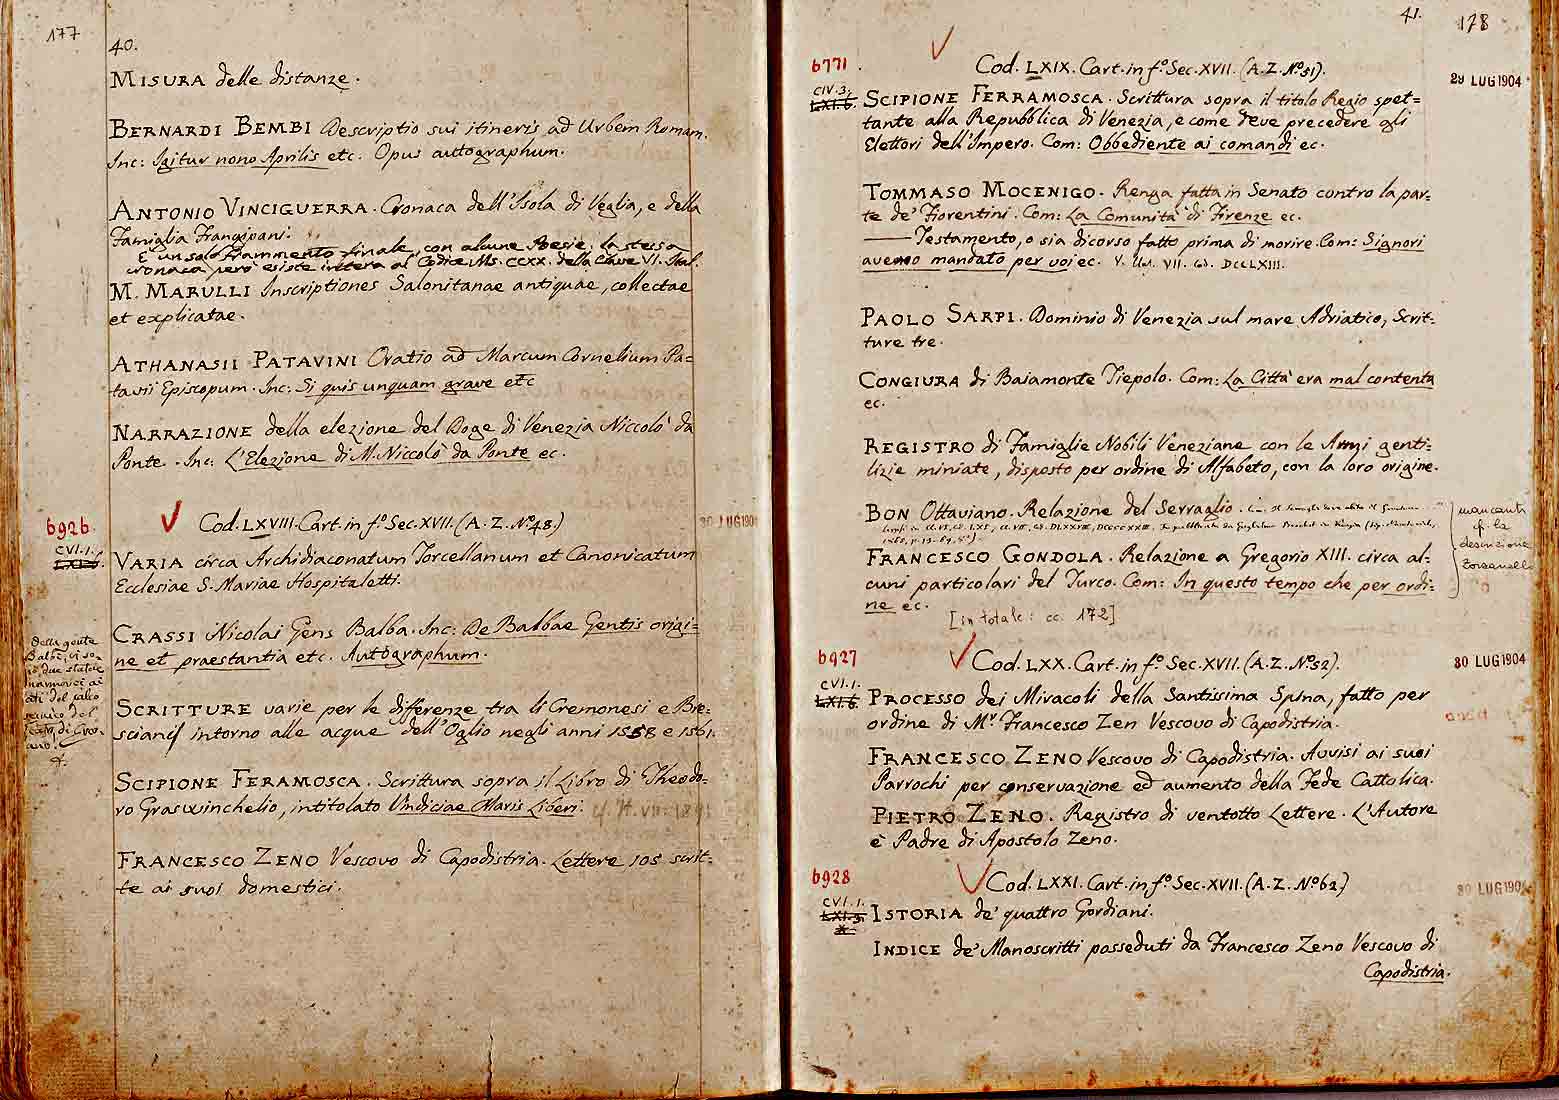 177
40.
MISURA delle distanze.
BERNARDI BEMBI Descriptio sui itineris ad Urbem Romam.
Inc: Igitur nono Aprilis etc. Opus autographum.
ANTONIO VINCIGUERRA. Cronaca dell'Isola di Veglia, e della
Famiglia Frangipani.
È un solo frammento finale, con alcune Poesie; la stessa
cronaca però esiste intera al Codice Ms. CCXX. della Classe VI. Ital.
M. MARULLI Inscriptiones Salonitanae antiquae, collectae
et explicatae.
ATHANASII PATAVINI Oratio ad Marcum Cornelium Pa=
tavii Episcopum. Inc: Si quis unquam grave etc
NARRAZIONE della elezione del Doge di Venezia Niccolò da
Ponte. Inc: L'Elezione di M. Niccolò da Ponte ec.
6926
CVI.1.
LXI.6.
Cod. LXVIII. Cart. in f.º Sec. XVII. (A. Z. Nº 48)
30 LUG 1904
VARIA circa Archidiaconatum Torcellanum et Canonicatum
Ecclesiae S. Mariae Hospitaletti.
CRASSI Nicolai Gens Balba. Inc: De Balbae Gentis origi=
ne et praestantia etc. Autographum.
della gente
Balbi, vi so=
no due statue
marmoree ai
lati del palco
scenico del
SCRITTURE varie per le differenze tra li Cremonesi e Bre=
sciani intorno alle acque dell'Oglio negli anni 1558 e 1561.
SCIPIONE FERAMOSCA. Scrittura sopra il Libro di Theodo=
ro Graswinchelio, intitolato Vindiciae Maris Liberi.
FRANCESCO ZENO Vescovo di Capodistria. Lettere 105 scrit=
te ai suoi domestici.
41.
178
6771
CIV.3.
LXI.6.
Cod. LXIX. Cart. in f.º Sec. XVII. (A. Z. Nº 51).
29 LUG 1904
SCIPIONE FERRAMOSCA. Scrittura sopra il titolo Regio spet=
tante alla Repubblica di Venezia, e come deve precedere gli
Elettori dell'Impero. Com: Obbediente ai comandi ec.
TOMMASO MOCENIGO. Renga fatta in Senato contro la par=
te de' Fiorentini. Com: La Comunità di Firenze ec.
—— Testamento, o sia dicorso fatto prima di morire. Com: Signori
avemo mandato per voi ec. V. Ital. VII. Cod. DCCLXIII.
PAOLO SARPI. Dominio di Venezia sul mare Adriatico, Scrit=
ture tre.
CONGIURA di Baiamonte Tiepolo. Com: La Città era mal contenta
ec.
REGISTRO di Famiglie Nobili Veneziane con le Armi genti=
lizie miniate, disposto per ordine di Alfabeto, con la loro origine.
BON Ottaviano. Relazione del Serraglio.
FRANCESCO GONDOLA. Relazione a Gregorio XIII. circa al=
cuni particolari del Turco. Com: In questo tempo che per ordi=
ne ec.
mancanti
cf. la
descrizione
Zorzanello
[in totale: cc. 172]
6927
CVI.1.
LXI.6.
Cod. LXX. Cart. in f.º Sec. XVII. (A. Z. Nº 52).
30 LUG 1904
PROCESSO dei Miracoli della Santissima Spina, fatto per
ordine di M.r Francesco Zen Vescovo di Capodistria.
FRANCESCO ZENO Vescovo di Capodistria. Avvisi ai suoi
Parrochi per conservazione ed aumento della Fede Cattolica.
PIETRO ZENO. Registro di ventotto Lettere. L'Autore
è Padre di Apostolo Zeno.
6928
CVI.1.
LXI.3.
Cod. LXXI. Cart. in f.º Sec. XVII. (A. Z. Nº 62)
30 LUG 1904
ISTORIA de' quattro Gordiani.
INDICE de' Manoscritti posseduti da Francesco Zeno Vescovo di
Capodistria.